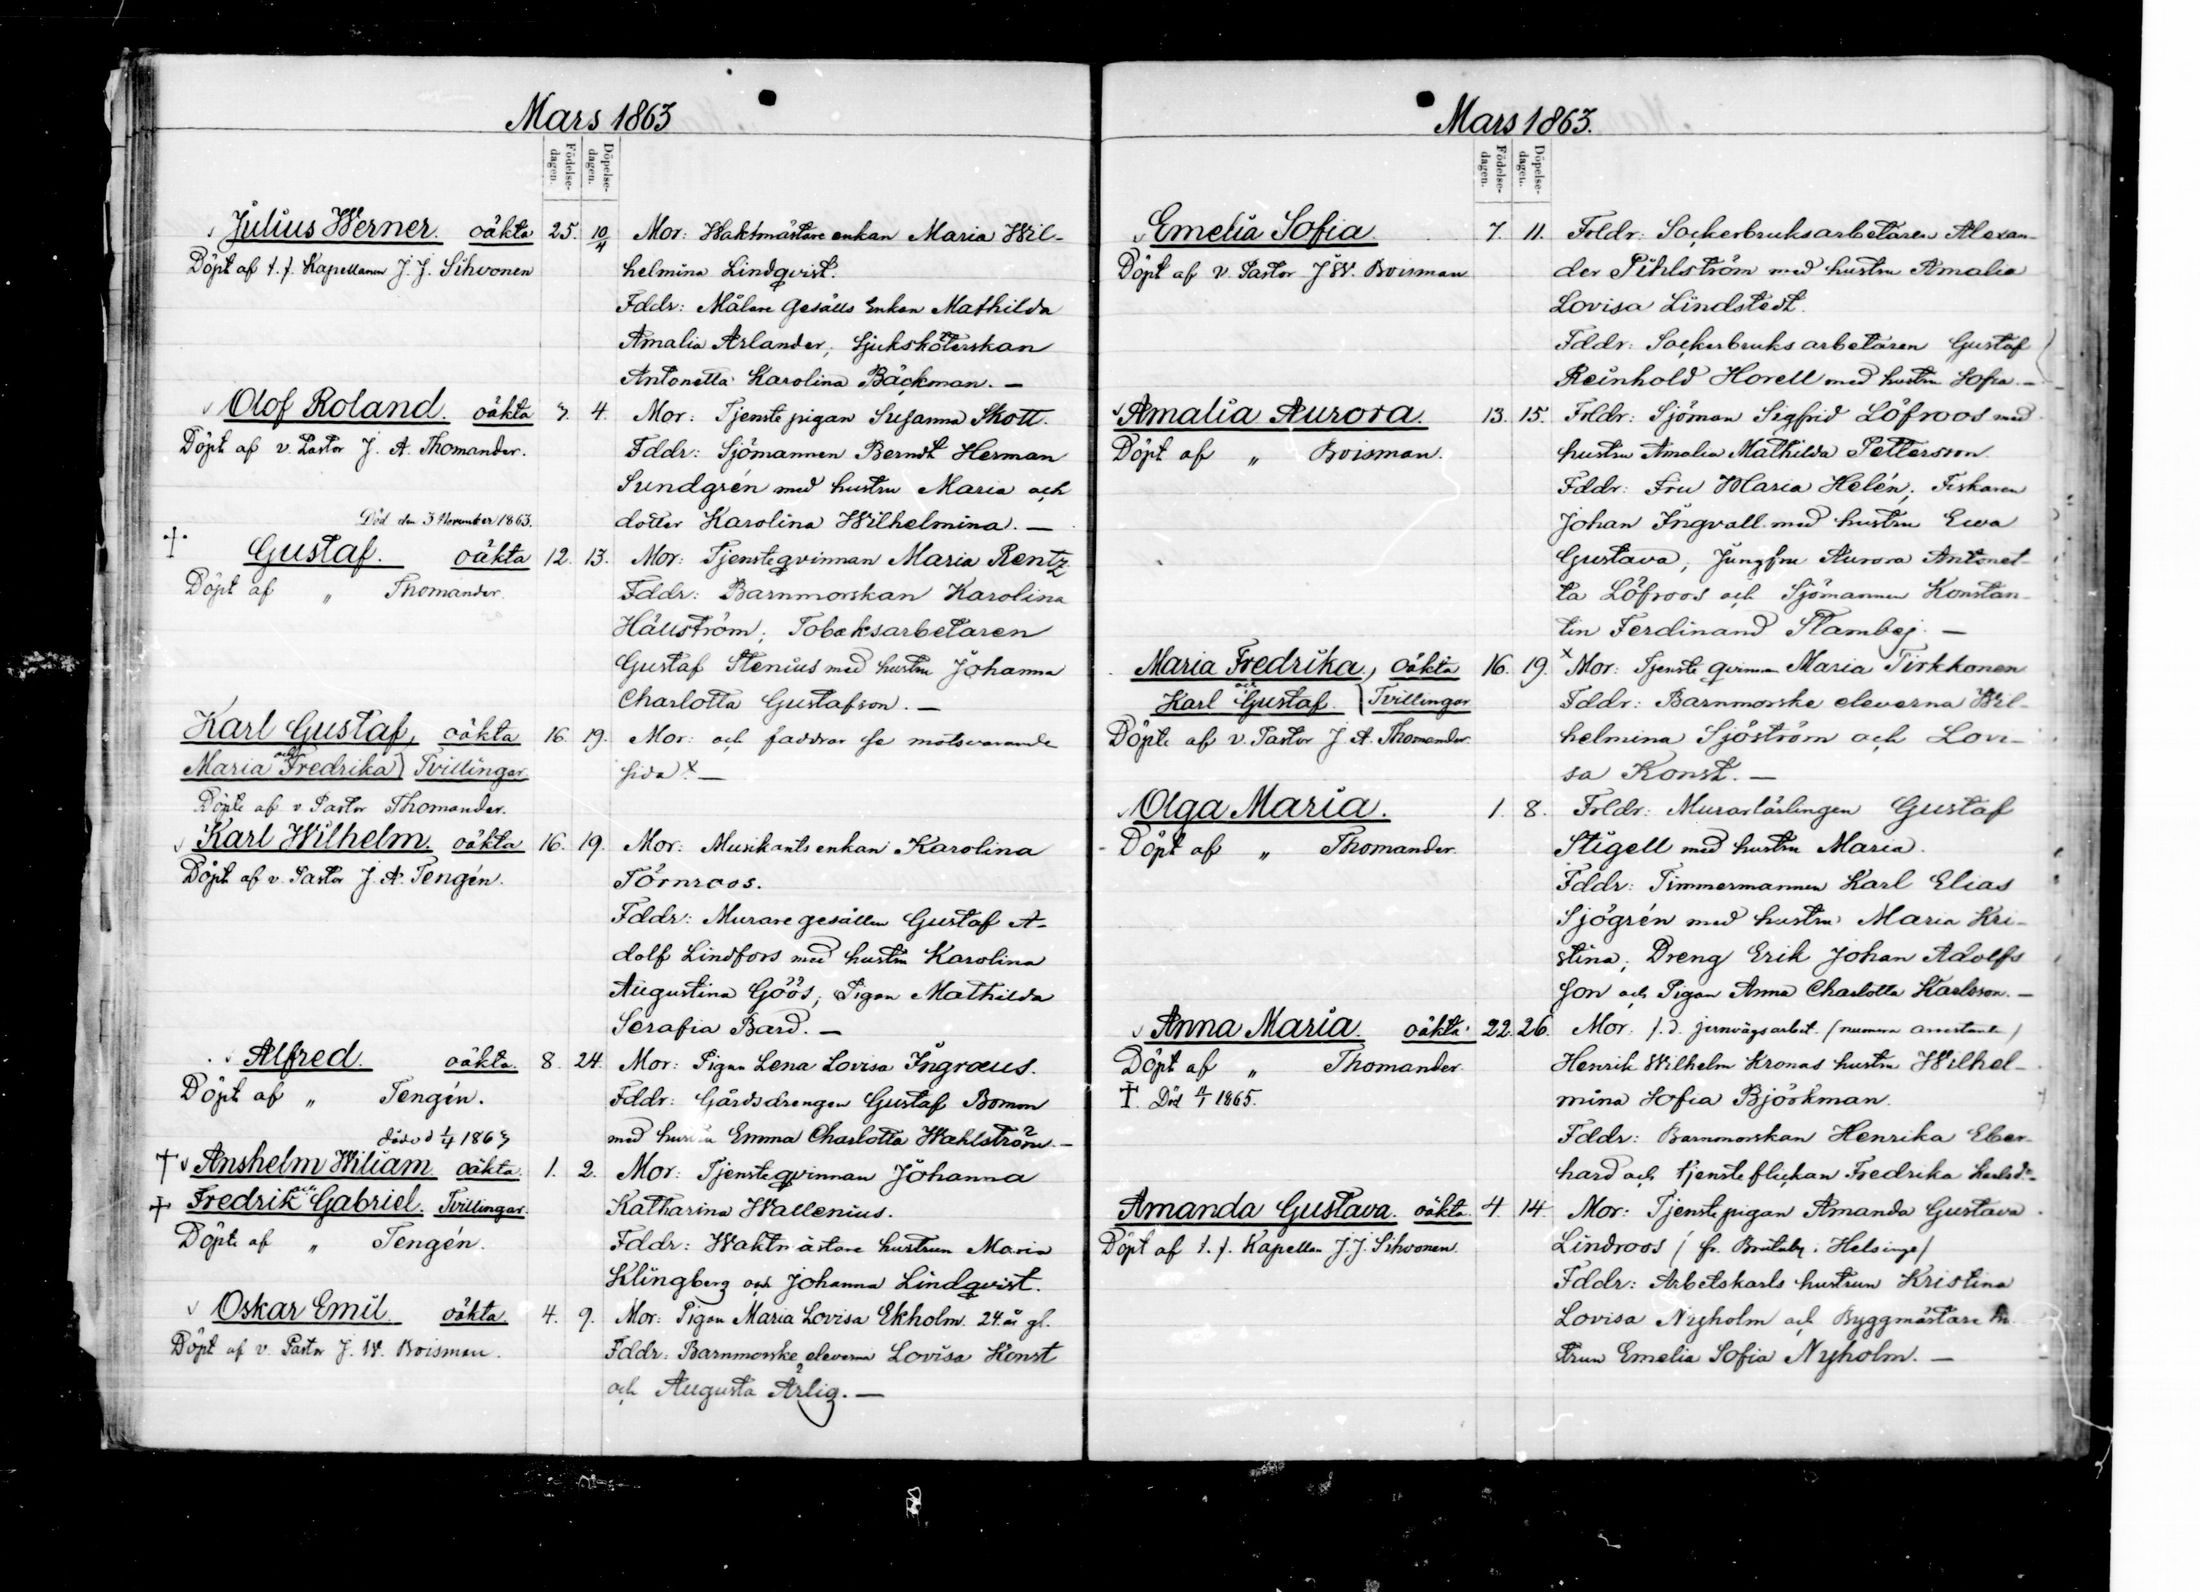 Mars 1863
Födelse-dagen.
Döpelse-dagen.
Julius Werner. oäkta 25. 10/4 Mor: Waktmästare enkan Maria Wil-
Döpt af t. f. Kapellanen J. J. Sihvonen helmina Lindqvist.
Fddr: Målare Gesälls Enkan Mathilda
Amalia Arlander, Sjuksköterskan
Antonetta Karolina Bäckman. —
Olof Roland. oäkta 3. 4. Mor: Tjenstepigan Susanna Skott.
Döpt af v. Pastor J. A. Thomander. Fddr: Sjömannen Berndt Herman
Sundgrén med hustru Maria och
Död den 3 November 1863. dotter Karolina Wilhelmina. —
Gustaf. oäkta 12. 13. Mor: Tjensteqvinnan Maria Rentz
Döpt af „ Thomander. Fddr: Barnmorskan Karolina
Hällström, Tobaksarbetaren
Gustaf Stenius med hustru Johanna
Charlotta Gustafson. —
Karl Gustaf, oäkta 16. 19. Mor: och faddrar se motsvarande
Maria och Fredrika) Tvillingar sida x —
Döpte af v. Pastor Thomander.
Karl Wilhelm. oäkta 16. 19. Mor: Musikants enkan Karolina
Döpt af v. Pastor J. A. Tengén. Törnroos.
Fddr: Murare gesällen Gustaf A-
dolf Lindfors med hustru Karolina
Augustina Göös, Pigan Mathilda
Serafia Bard. —
Alfred. oäkta. 8. 24. Mor: Pigan Lena Lovisa Ingræus.
Döpt af „ Tengén. Fddr: Gårdsdrengen Gustaf Boman
döde d 1/4 1863 med hustru Emma Charlotta Wahlström. —
† Anshelm Wiliam. oäkta. 1. 2. Mor: Tjensteqvinnan Johanna
† Fredrik och Gabriel. Tvillingar. Katharina Wallenius.
Döpte af „ Tengén. Fddr: Waktmästare hustrun Maria
Klingberg och Johanna Lindqvist.
Oskar Emil oäkta. 4. 9. Mor: Pigan Maria Lovisa Ekholm. 24 år gl.
Döpt af v. Pastor J. W. Boisman. Fddr: Barnmorske eleverna Lovisa Konst
och Augusta Ärlig. —
Mars 1863.
Födelse-dagen.
Döpelse-dagen.
Emelia Sofia. 7. 11. Frldr: Sockerbruksarbetaren Alexan-
Döpt af v. Pastor J. W. Boisman der Pihlström med hustru Amalia
Lovisa Lindstedt.
Fddr: Sockerbruks arbetaren Gustaf
Reinhold Horell med hustru Sofia. —
Amalia Aurora. 13. 15. Frldr: Sjöman Sigfrid Löfroos med
Döpt af „ Boisman. hustru Amalia Mathilda Pettersson
Fddr: Fru Maria Helén, Fiskaren
Johan Ingvall med hustru Ewa
Gustava, Jungfru Aurora Antonet-
ta Löfroos och Sjömannen Konstan-
tin Ferdinand Stambej. —
Maria Fredrika, oäkta 16. 19. x Mor: Tjenste qvinnan Maria Tirkkonen
och Karl Gustaf. ) Tvillingar Fddr: Barnmorske eleverna Wil-
Döpte af v. Pastor J. A. Thomander. helmina Sjöström och Lovi-
sa Konst. —
Olga Maria. 1. 8. Frldr: Murarlärlingen Gustaf
Döpt af „ Thomander. Stigell med hustru Maria.
Fddr: Timmermannen Karl Elias
Sjögrén med hustru Maria Kri-
stina, Dreng Erik Johan Adolfs
son och Pigan Anna Charlotta Karlsson. —
Anna Maria. oäkta. 22. 26. Mor: f. d. jernvägsarbet. (numera arrestanten)
Döpt af „ Thomander Henrik Wilhelm Kronas hustru Wilhel-
† Död 1865. mina Sofia Björkman.
Fddr: Barnmorskan Henrika Eber-
hard och tjensteflickan Fredrika
Amanda Gustava. oäkta. 4. 14. Mor: Tjenstepigan Amanda Gustava
Döpt af t. f. Kapellan J. J. Sihvonen. Lindroos (fr. i Helsinge)
Fddr: Arbetskarls hustrun Kristina
Lovisa Nyholm och Byggmästare hu-
strun Emelia Sofia Nyholm. —